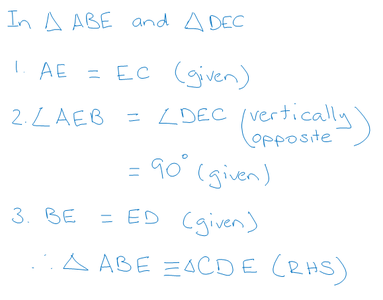 In △ABE and △DEC
1. AE = EC (given)
2. ∠AEB = ∠DEC (vertically opposite)
= 90° (given)
3. BE = ED (given)
∴ △ABE ≡ △CDE (RHS)